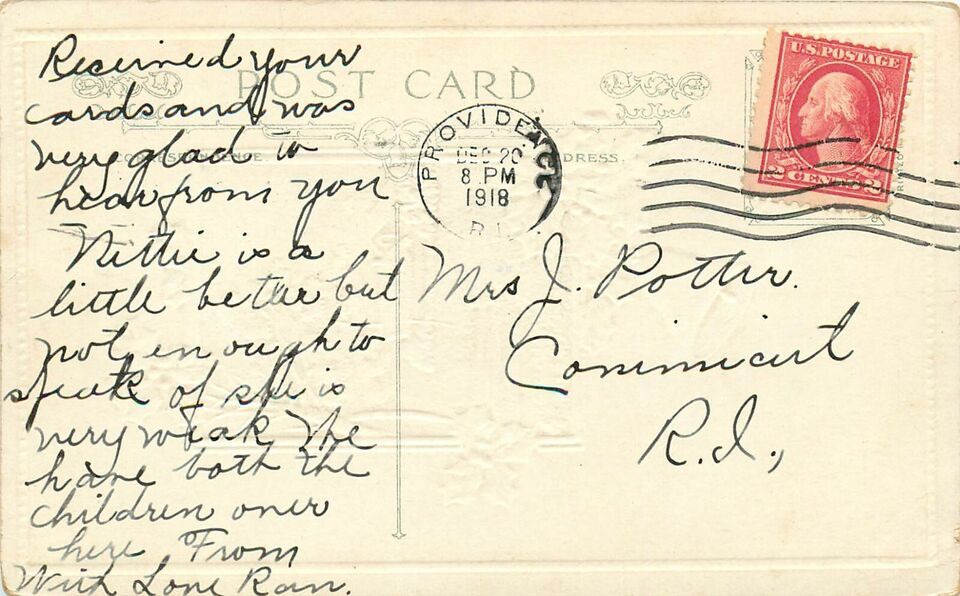 POST CARD
Received your
cards and was
very glad to
hear from you
Nettie is a
little better but
not enough to
speak of she is
very weak We
have both the
children over
here From
With Love
CORRESPONDENCE
ADDRESS.
PROVIDENCE
DEC 20
8 PM
1918
R.I.
U.S. POSTAGE
2 CENTS 2
Mrs J. Potter.
Conimicut
R.I.,